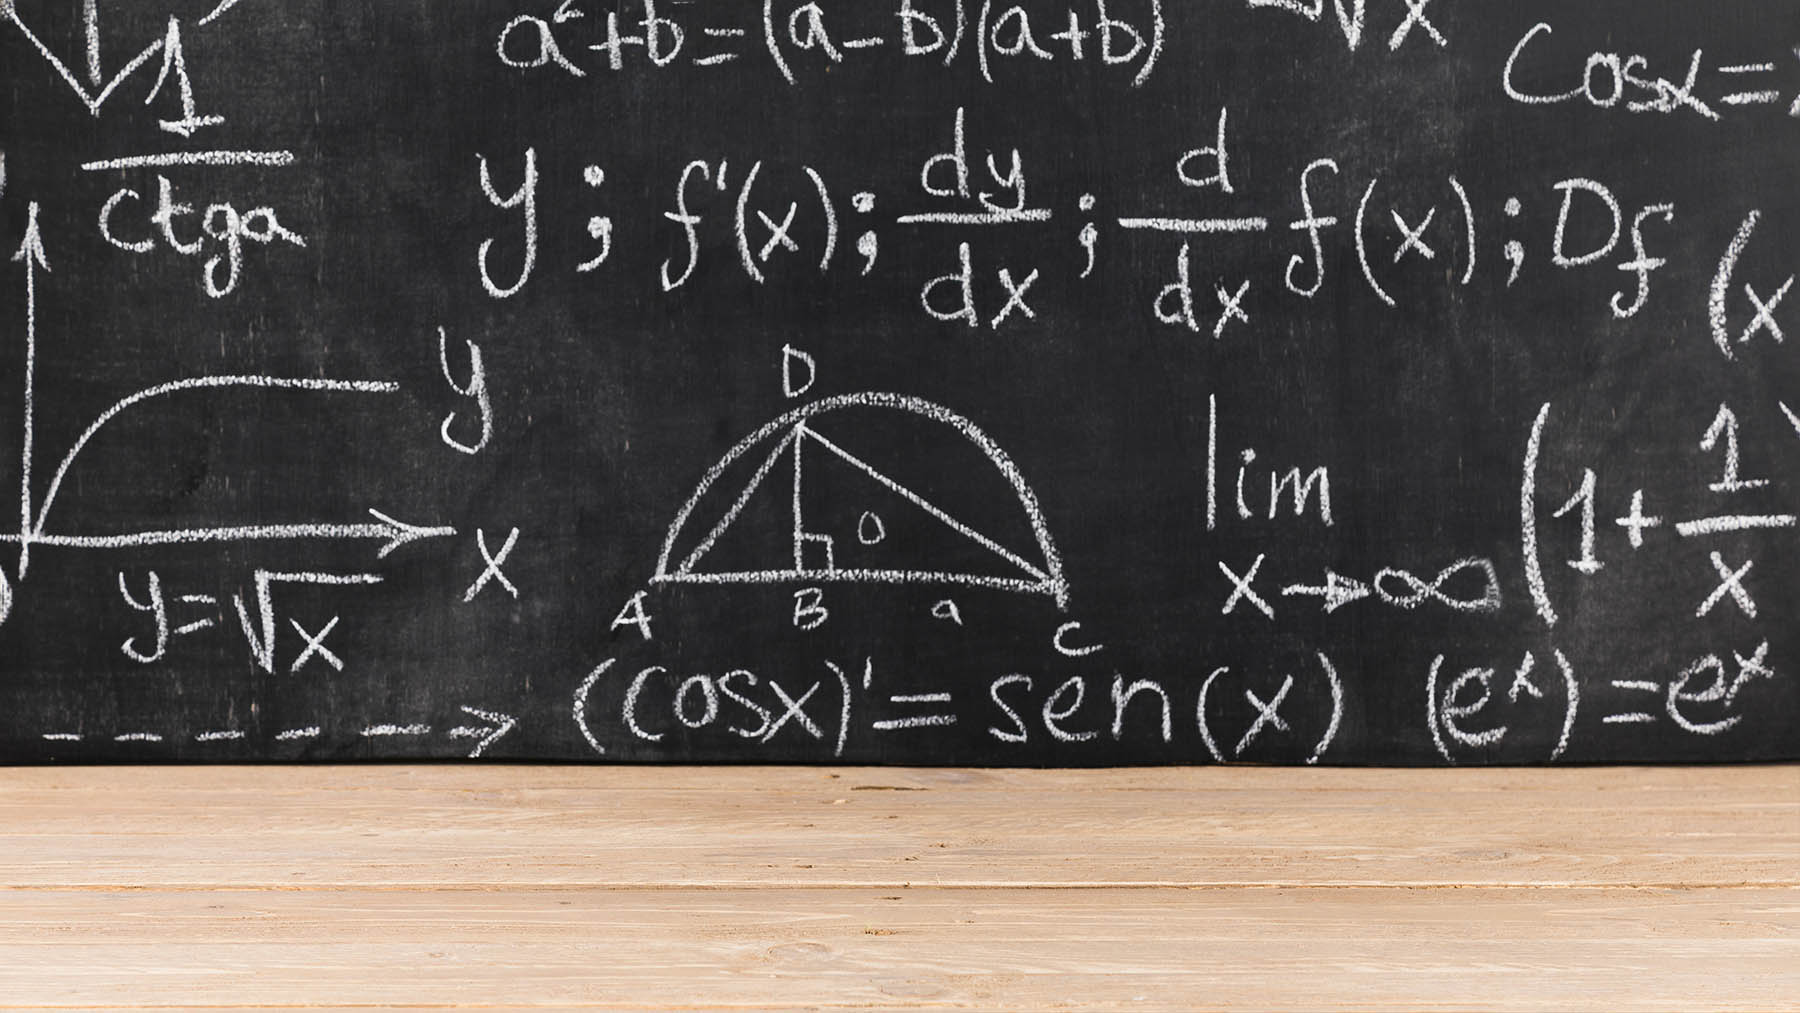 a²+b=(a-b)(a+b)
√x
Cosx=
1
ctga
y ; f'(x) ; dy/dx ; d/dx f(x) ; Df(x
y
x
y=√x
D
O
A B a C
lim x→∞ (1+1/x
(cosx)'=sen(x)
(eˣ)=eˣ